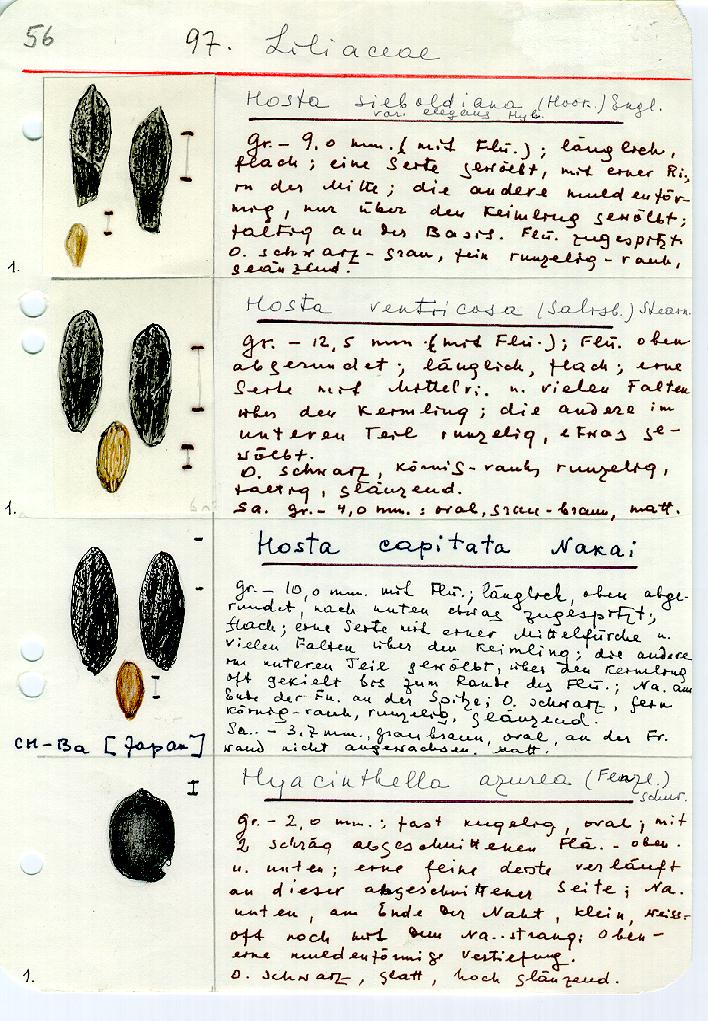 56
97. Liliaceae
Hosta sieboldiana (Hook.) Engl.
var. elegans Hyb.
gr. – 9,0 mm. (mit Flü.); länglich,
flach; eine Seite gewölbt, mit einer Ri.
in der Mitte; die andere muldenför-
mig, nur über den Keimling gewölbt;
faltig an der Basis. Flü. zugespitzt.
O. schwarz-grau, fein runzelig-rauh,
glänzend.
1.
Hosta ventricosa (Salisb.) Stearn.
gr. – 12,5 mm. (mit Flü.); Flü. oben
abgerundet; länglich, flach; eine
Seite mit Mittelri. u. vielen Falten
über den Keimling; die andere im
unteren Teil runzelig, etwas ge-
wölbt.
O. schwarz, körnig-rauh, runzelig,
faltig, glänzend.
Sa. gr. – 4,0 mm.: oval, grau-braun, matt.
1.
Hosta capitata Nakai
gr. – 10,0 mm. mit Flü.; länglich, oben abge-
rundet, nach unten etwas zugespitzt;
flach; eine Seite mit einer Mittelfurche u.
vielen Falten über den Keimling; die andere
im unteren Teil gewölbt, über den Keimling
oft gekielt bis zum Rande des Flü.; Na. am
Ende der Fu. an der Spitze; O. schwarz, fein
körnig-rauh, runzelig, glänzend.
Sa. – 3,7 mm., graubraun, oval, an der Fr.
wand nicht angewachsen. matt.
CH-Ba [Japan]
Hyacinthella azurea (Fenzl.)
Schur.
gr. – 2,0 mm.; fast kugelig, oval; mit
2 schräg abgeschnittenen Flä. – oben
u. unten; eine feine Leiste verläuft
an dieser abgeschnittener Seite; Na.
unten, am Ende der Naht, klein, weiss-
oft noch mit dem Na.-strang; oben –
eine muldenförmige Vertiefung.
O. schwarz, glatt, hoch glänzend.
1.